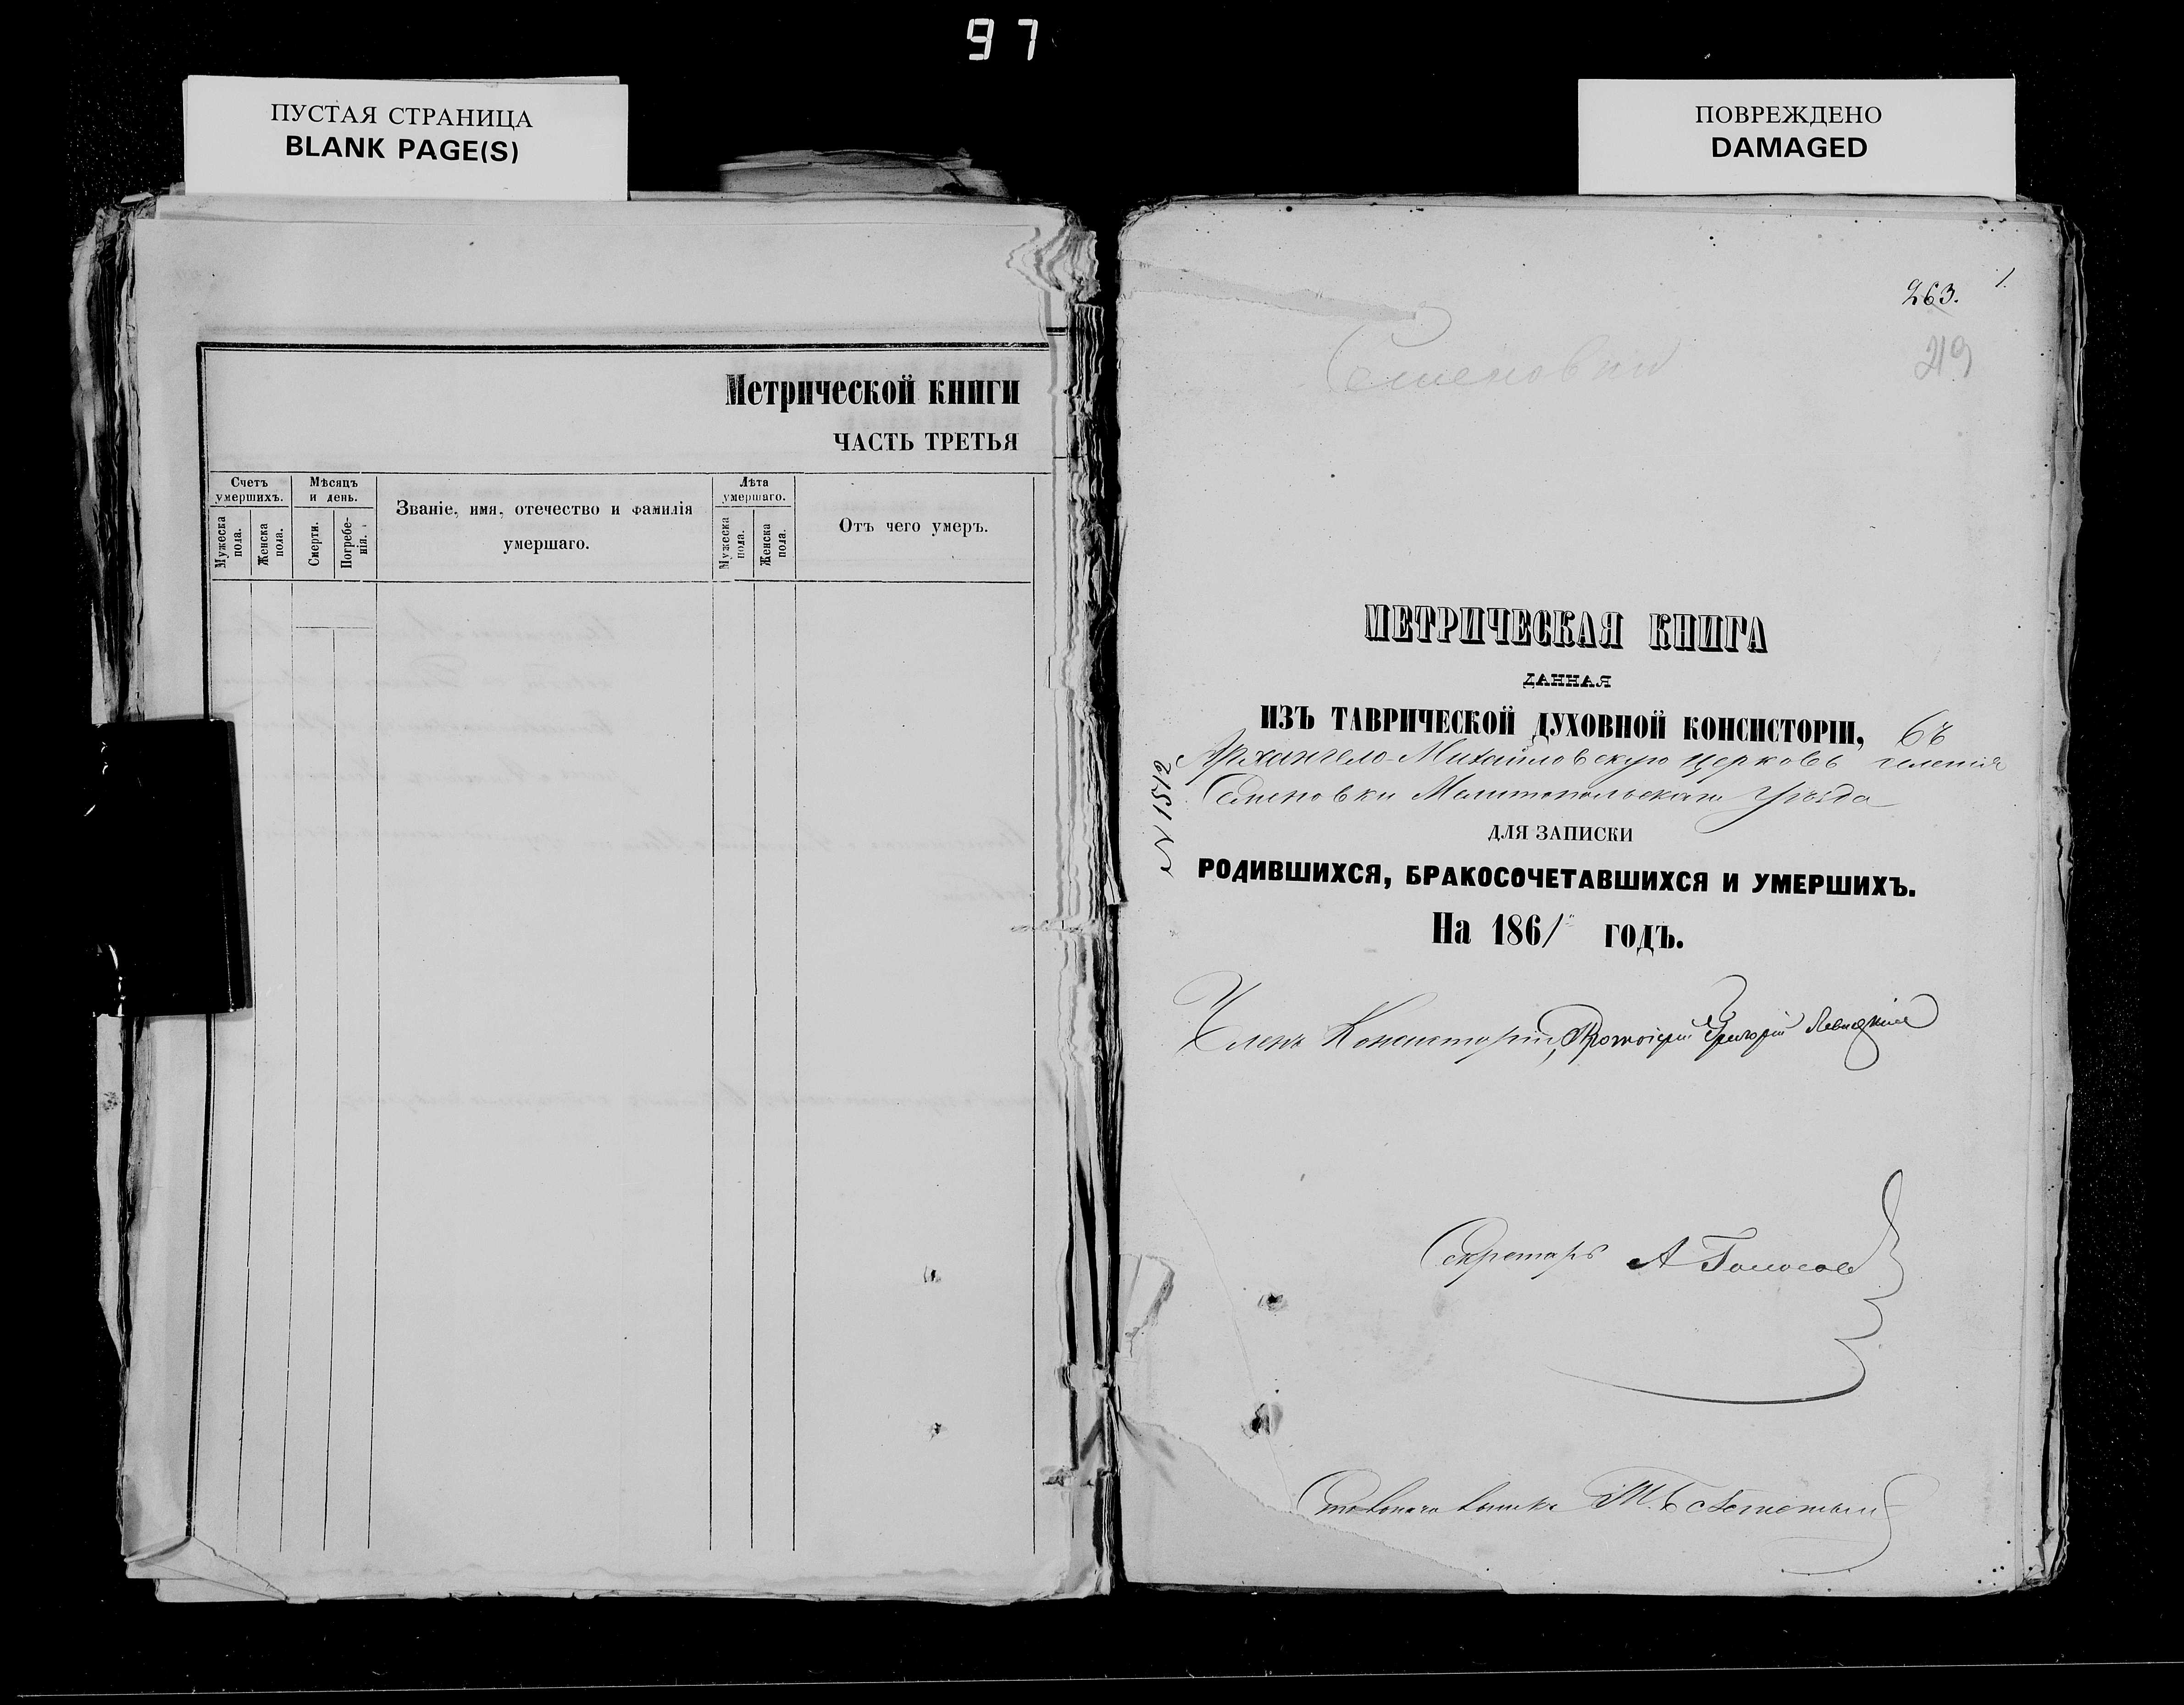 97
ПУСТАЯ СТРАНИЦА
BLANK PAGE(S)
Метрической книги
ЧАСТЬ ТРЕТЬЯ
Счетъ умершихъ.
Мужеска пола.
Женска пола.
Мѣсяцъ и день.
Смерти.
Погребе-нія.
Званіе, имя, отечество и фамилія
умершаго.
Лѣта умершаго.
Мужеска пола.
Женска пола.
Отъ чего умеръ.
ПОВРЕЖДЕНО
DAMAGED
263. 1.
219
Семеновки
МЕТРИЧЕСКАЯ КНИГА
ДАННАЯ
ИЗЪ ТАВРИЧЕСКОЙ ДУХОВНОЙ КОНСИСТОРІИ, въ
Архангело-Михайловскую церковь селенія
Семеновки Мелитопольскаго Уѣзда
N 1512
ДЛЯ ЗАПИСКИ
РОДИВШИХСЯ, БРАКОСОЧЕТАВШИХСЯ И УМЕРШИХЪ.
На 1861 годъ.
Членъ Консисторіи, Протоіерей Григорій Левицкій
Секретарь А